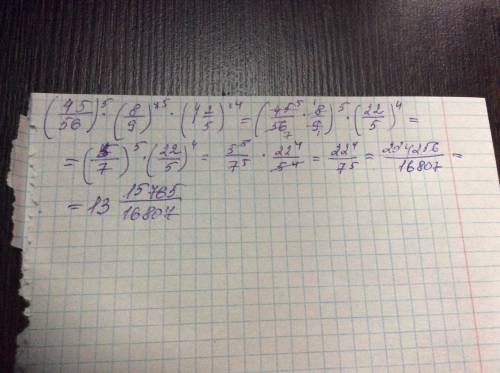 (45/56)^5 · (8/9)^5 · (4 2/5)^4 = (45/56 · 8/9)^5 · (22/5)^4 =
= (5/7)^5 · (22/5)^4 = 5^5/7^5 · 22^4/5^4 = 22^4/75 = 234256/16807 =
= 13 15765/16807